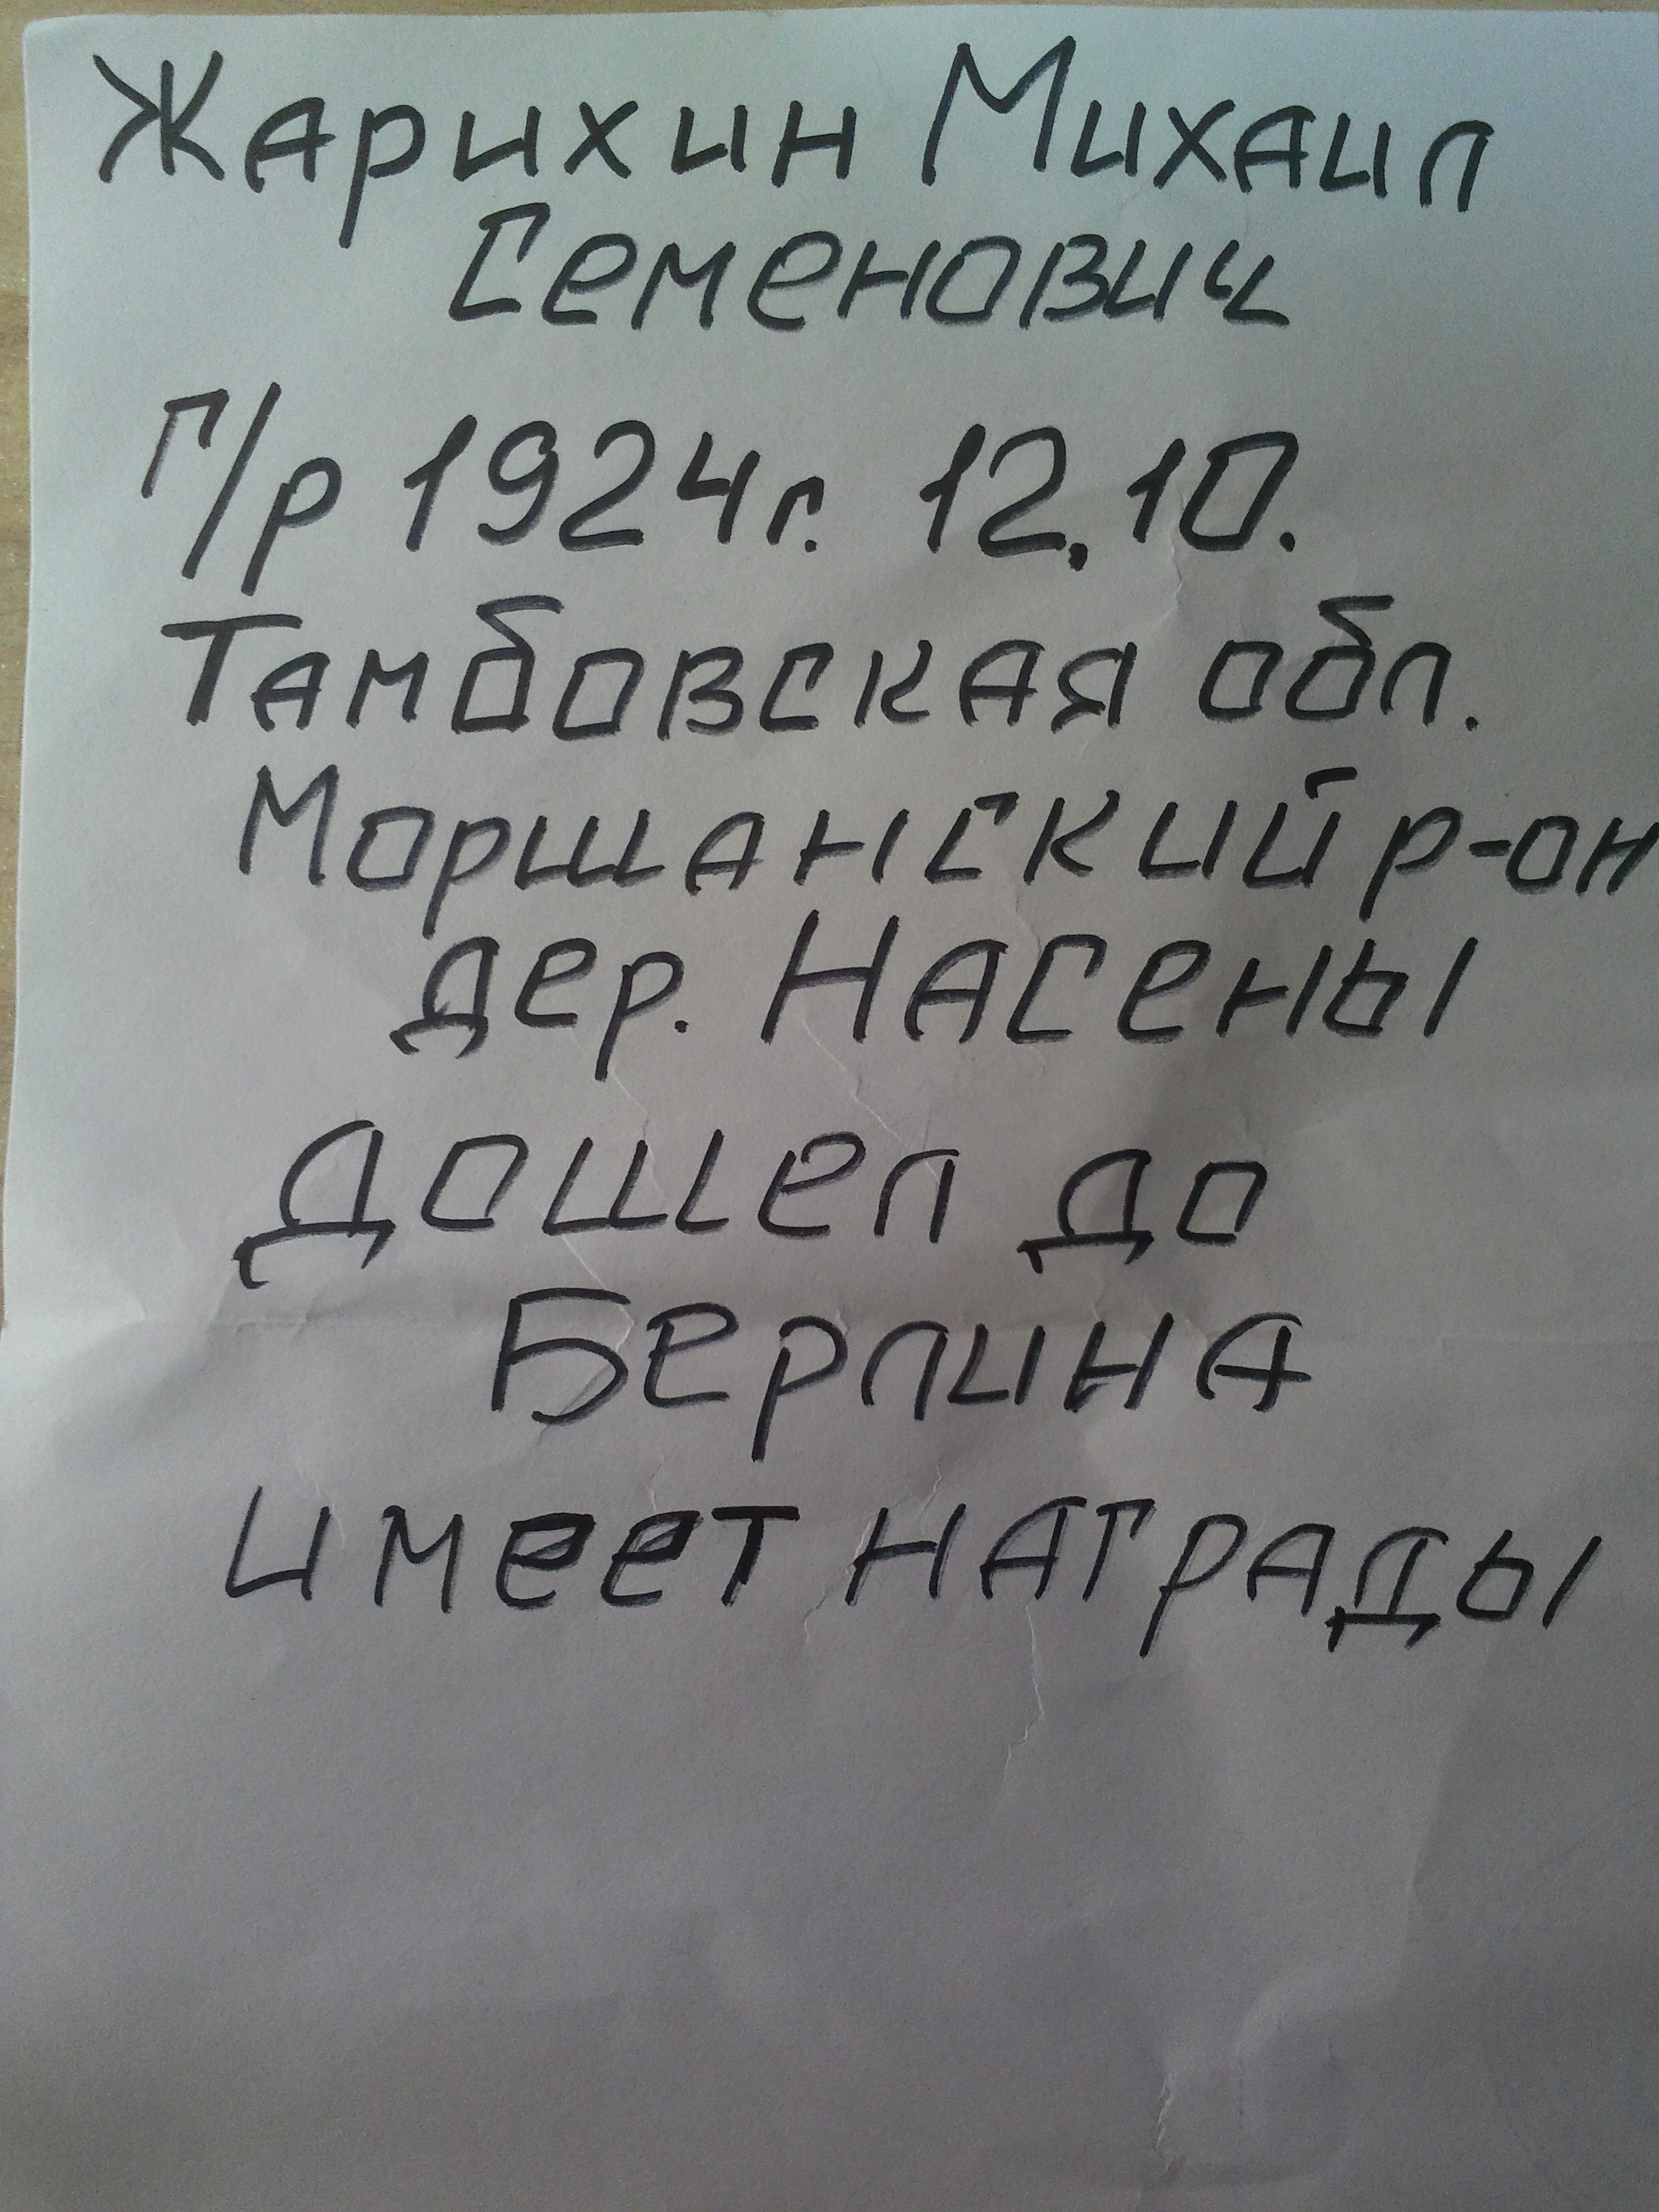 Жарихин Михаил
Семенович
Г/р 1924г. 12.10.
Тамбовская обл.
Моршанский р-он
дер. Насены
Дошел до
Берлина
имеет награды